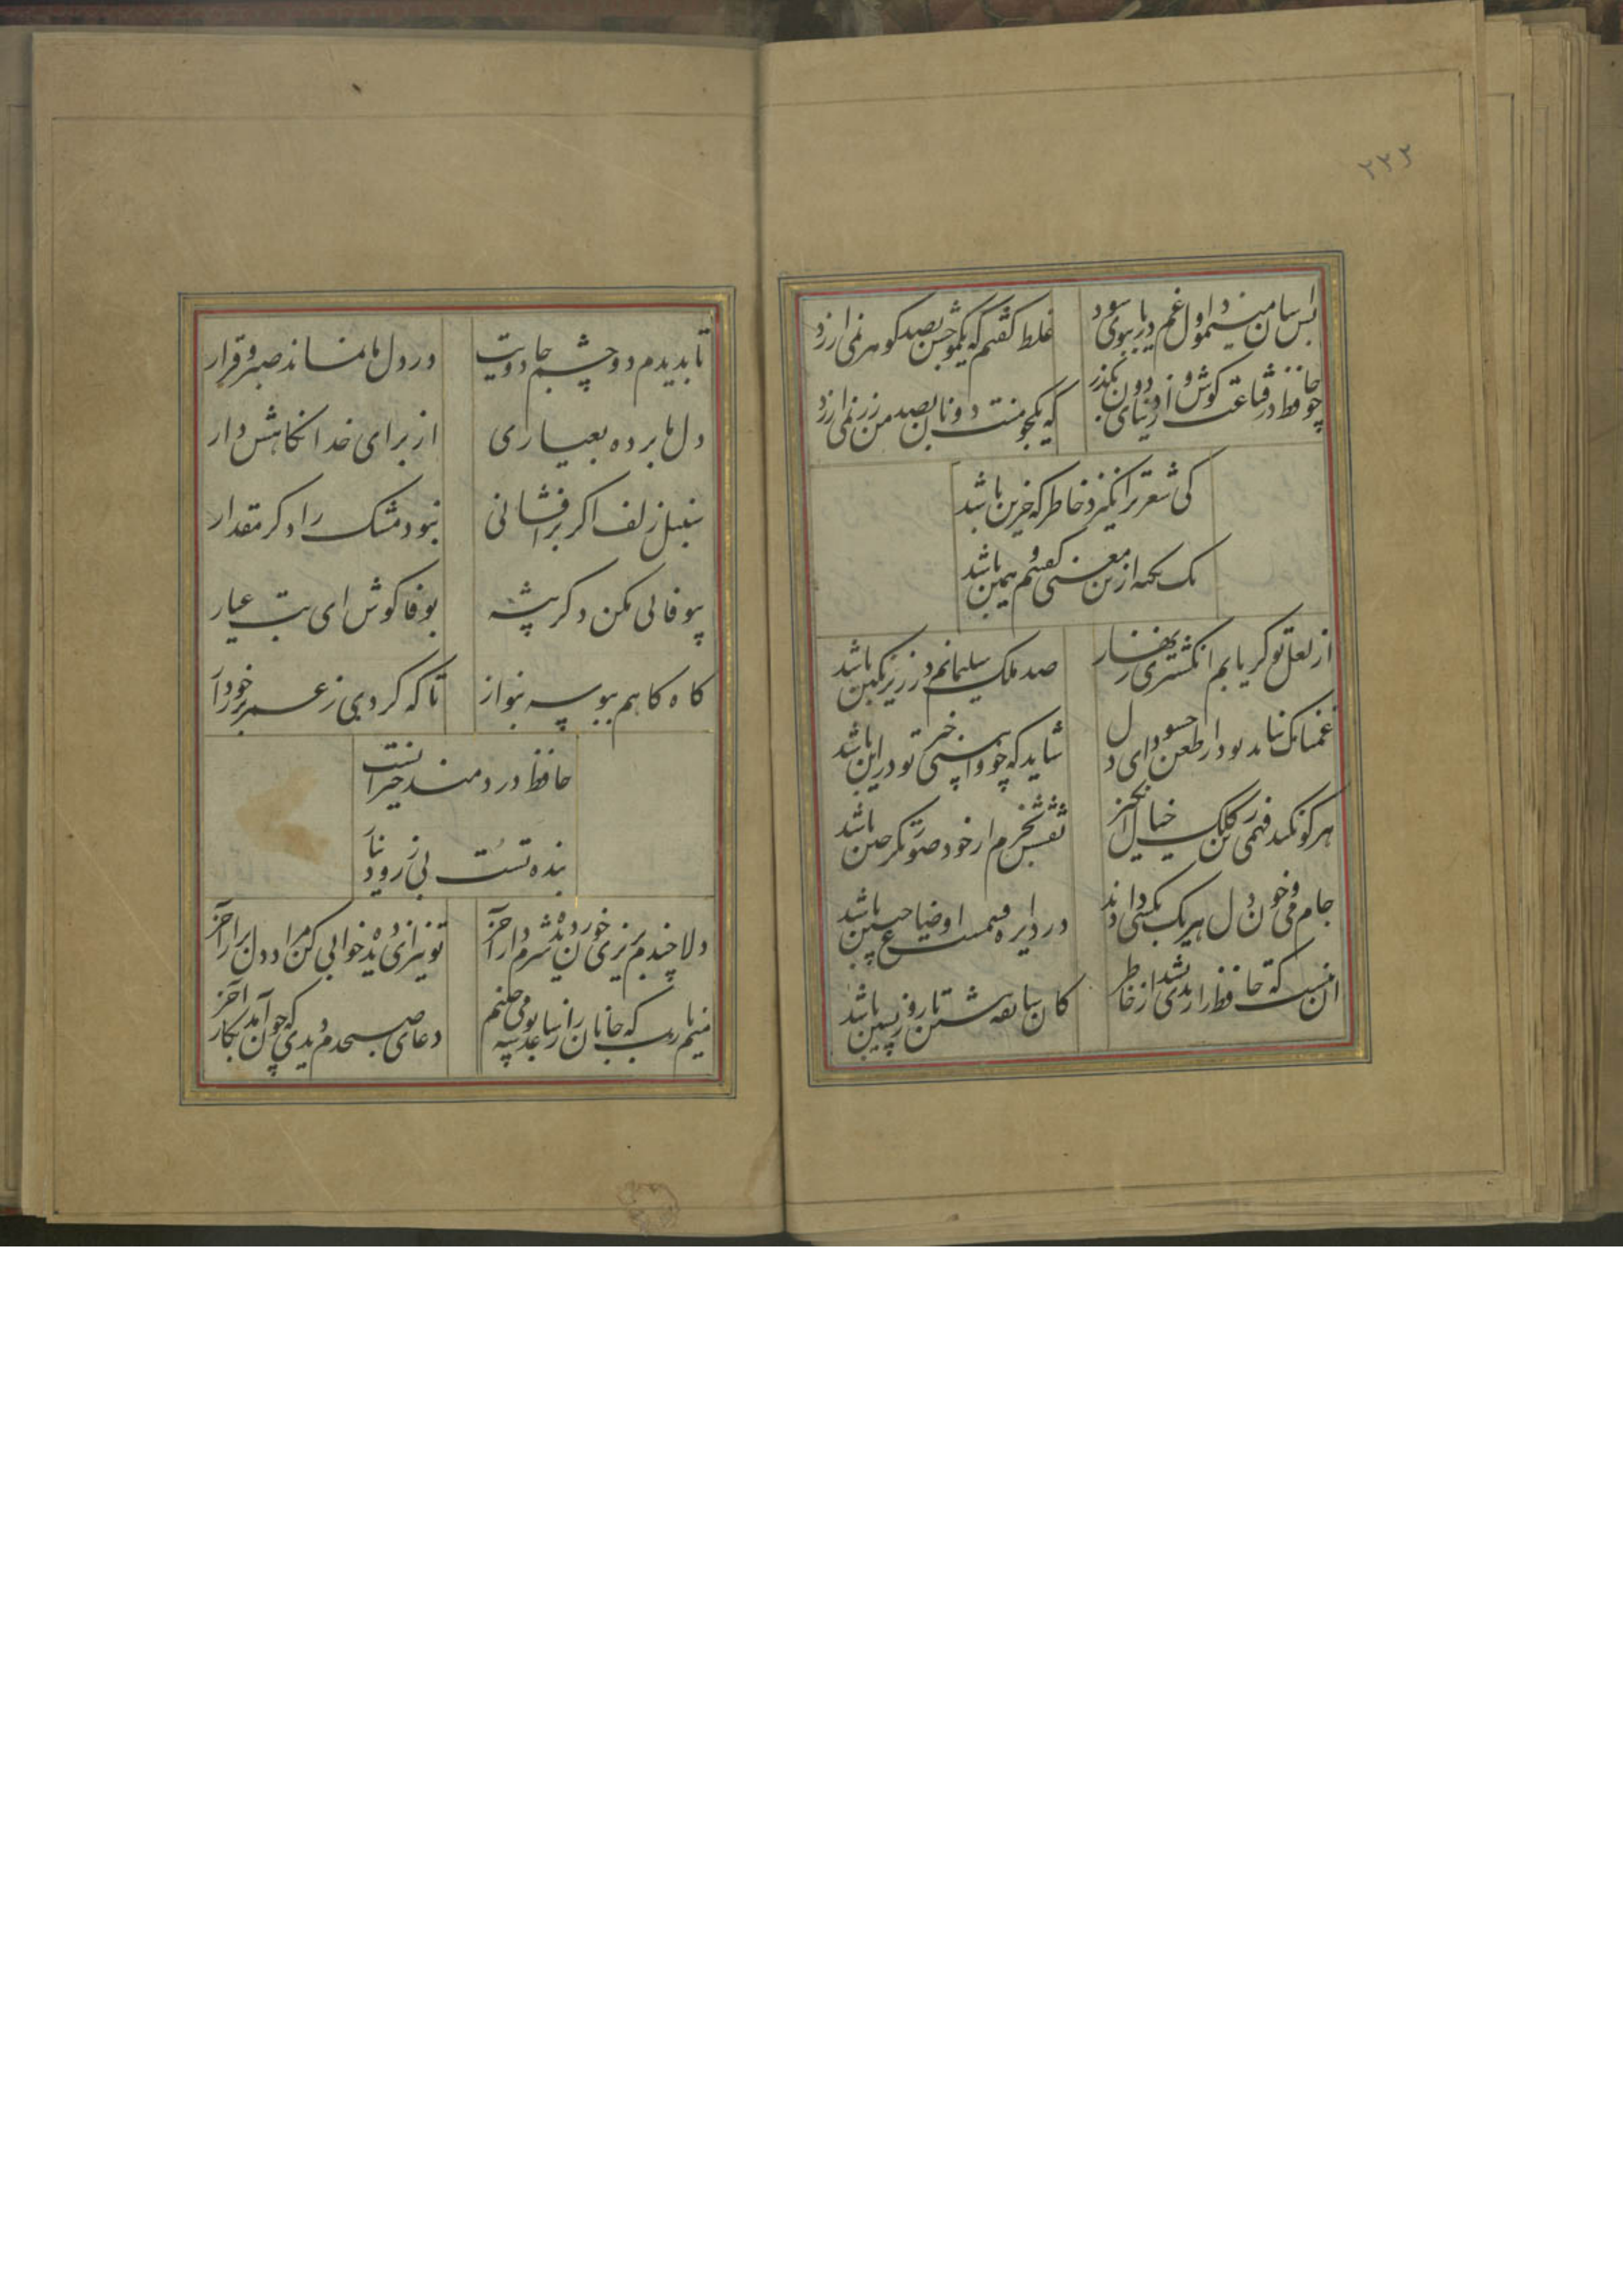 ۲۳۲
بس آسان مینمود اول غم دریا ببوی سود
غلط گفتم که یکموجش بصد گوهر نمی ارزد
چو حافظ در قناعت کوش و از دنیای دون بگذر
که یکجو منت دونان بصد من زر نمی ارزد
کی شعر تر انگیزد خاطر که حزین باشد
یک نکته ازین معنی گفتیم و همین باشد
از لعل تو گر یابم انگشتری زنهار
صد ملک سلیمانم در زیر نگین باشد
غمناک نباید بود از طعن حسود ای دل
شاید که چو وابینی خیر تو درین باشد
هر کو نکند فهمی زین کلک خیال انگیز
نقشش نخرم ار خود صورتگر چین باشد
جام می و خون دل هر یک بکسی دادند
در دایره قسمت اوضاع چنین باشد
آن نیست که حافظ را رندی بشد از خاطر
کان سابقه پیشین تا روز پسین باشد
تا بدیدم دو چشم جادویت
در دل ما نماند صبر و قرار
دل ما برده بعیاری
از برای خدا نگاهش دار
سنبل زلف اگر برافشانی
نبود مشک را دگر مقدار
بیوفائی مکن دگر پیشه
بوفا کوش ای بت عیار
گاه گاهم ببوسه بنواز
تا که گردی ز عمر برخوردار
حافظ دردمند حیرانست
بنده تست بی زر و دینار
دلا چندم بریزی خون ز دیده شرم دار آخر
تو نیز ای دیده خوابی کن مراد دل برآر آخر
منم یارب که جانان را ز ساعد بوسه می چینم
دعای صبحدم دیدی که چون آمد بکار آخر